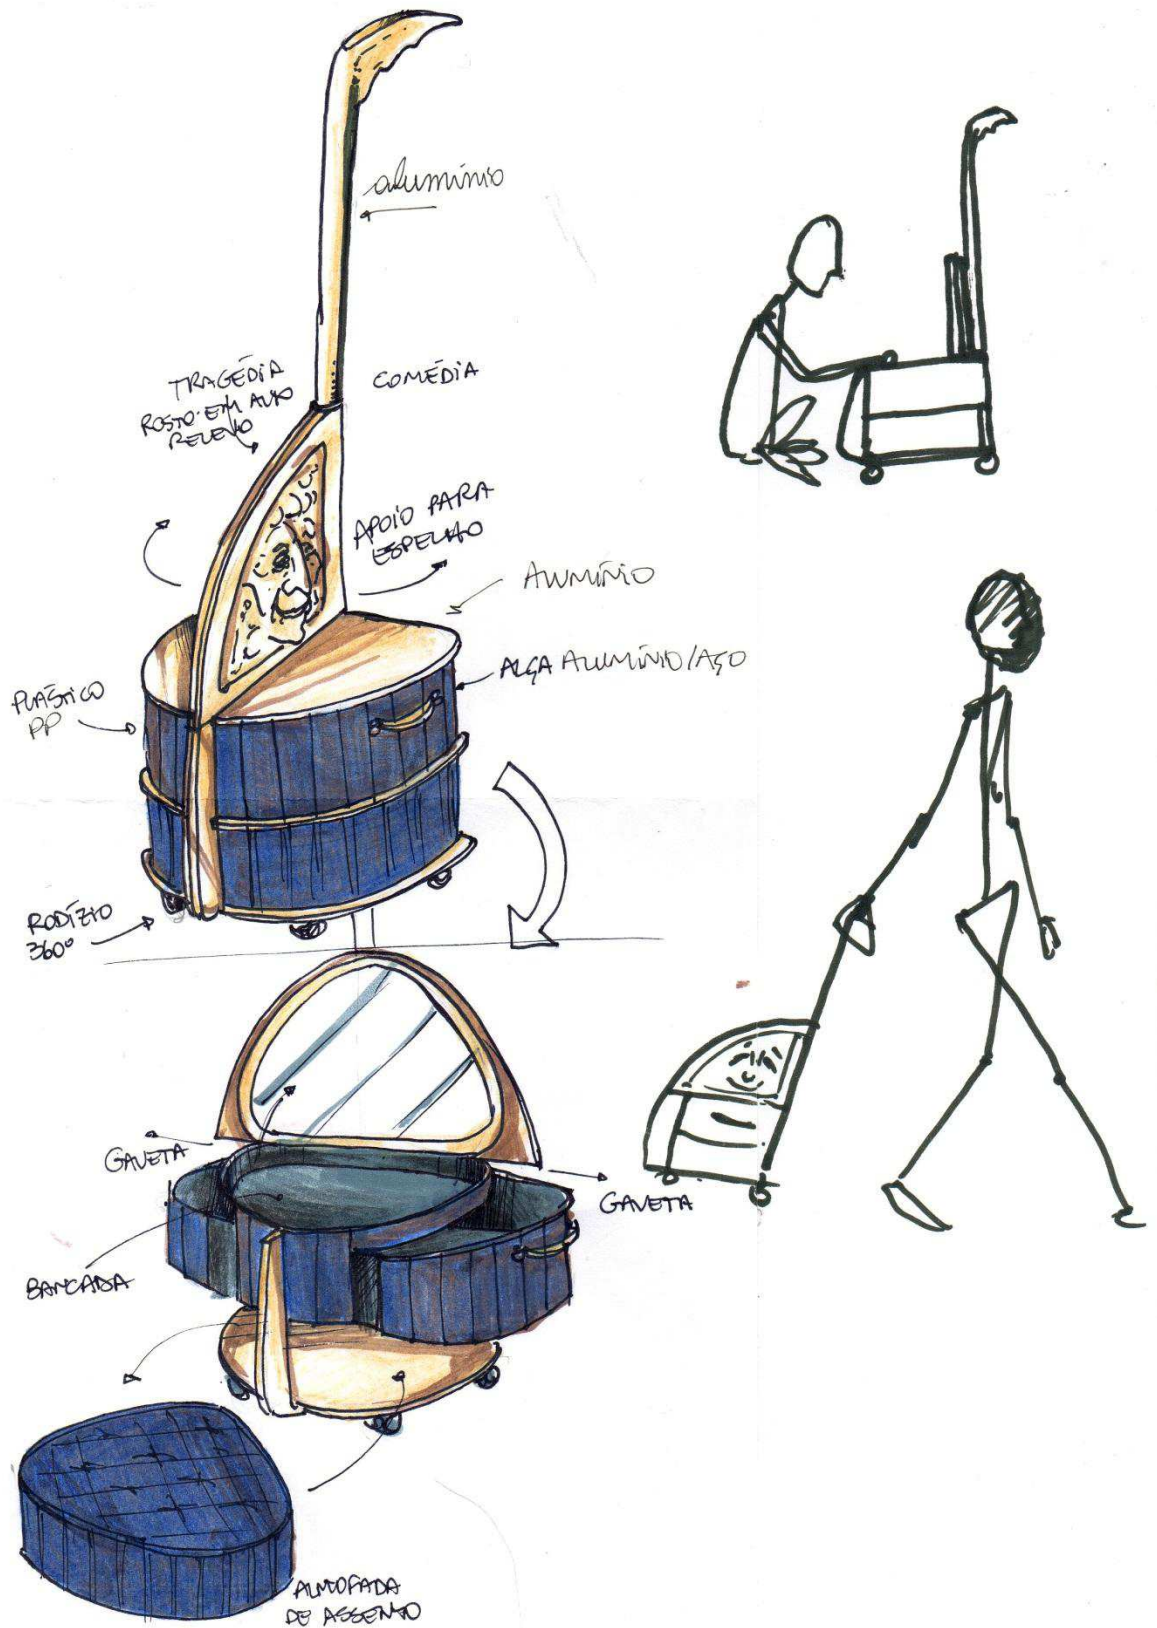 alumínio
TRAGÉDIA
ROSTO EM ALTO
RELEVO
COMÉDIA
APOIO PARA
ESPELHO
ALUMÍNIO
ALÇA ALUMÍNIO/AÇO
PLÁSTICO
PP
RODÍZIO
360º
GAVETA
GAVETA
BANCADA
ALMOFADA
DE ASSENTO